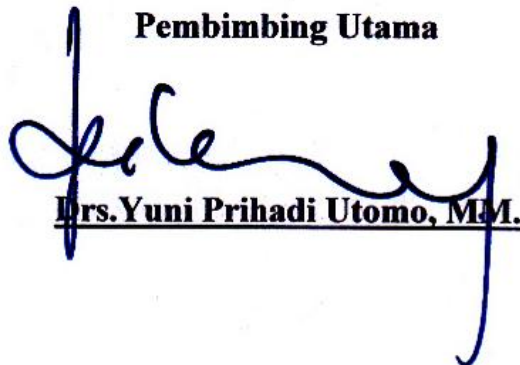 Pembimbing Utama
Drs.Yuni Prihadi Utomo, MM.